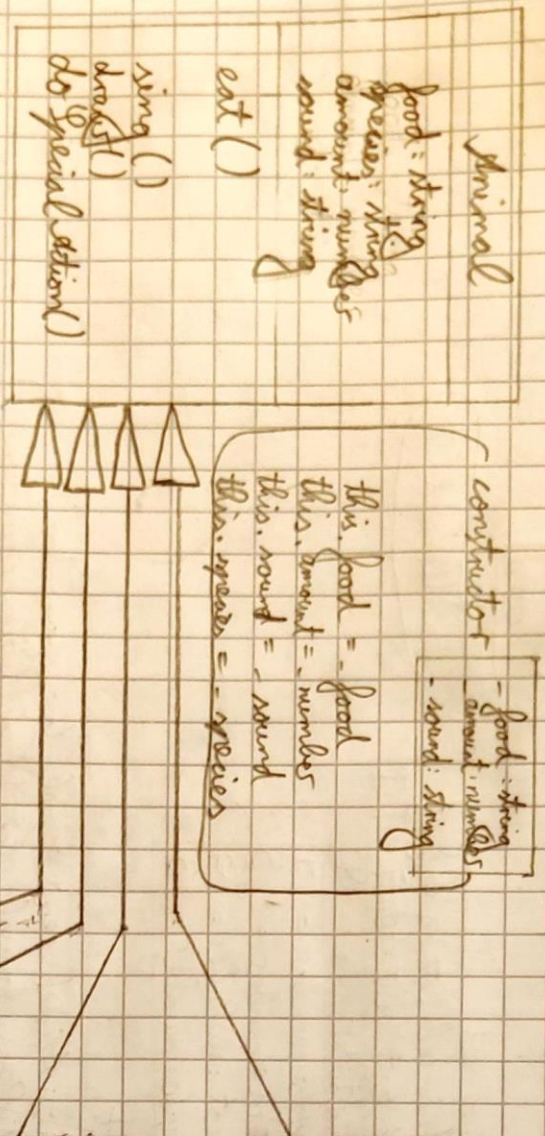 Animal
food: string
species: string
amount: number
sound: string
eat()
sing()
draw()
do Special Action()
constructor
_food: string
_amount: number
_sound: string
this. food = _food
this. amount = _number
this. sound = _sound
this. species = _species